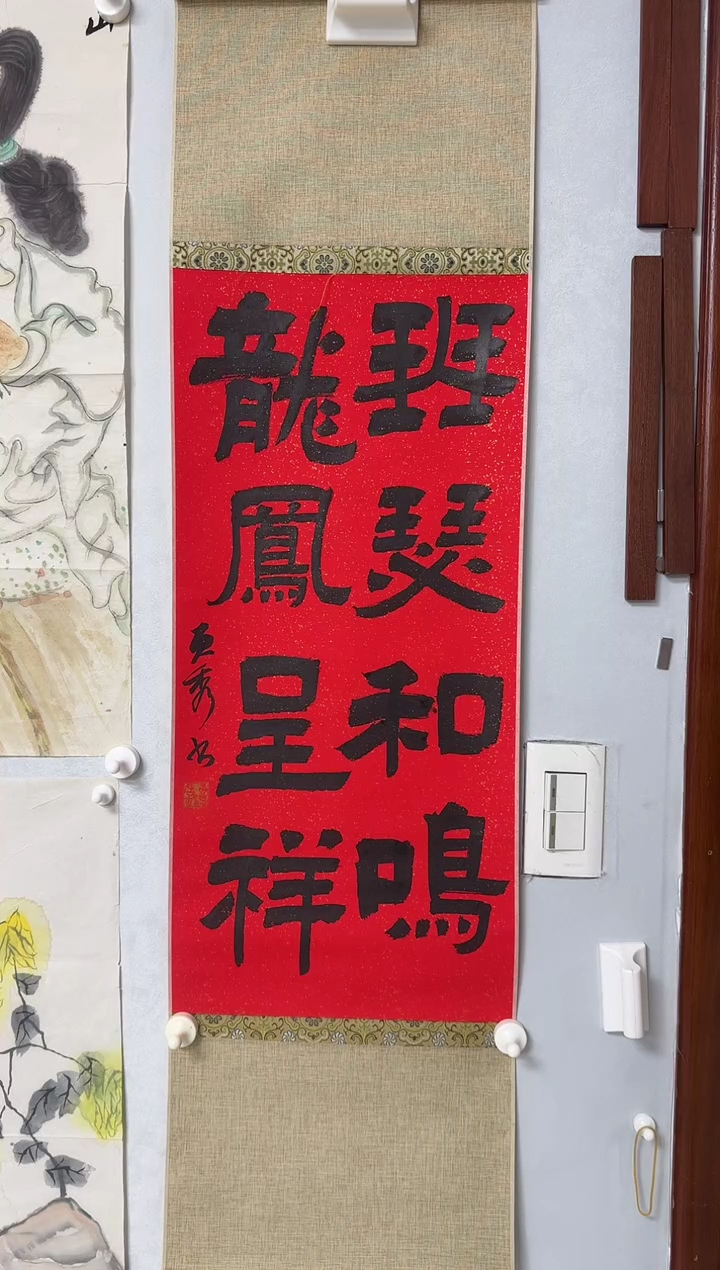 班瑟和鳴
龍鳳呈祥
秀书